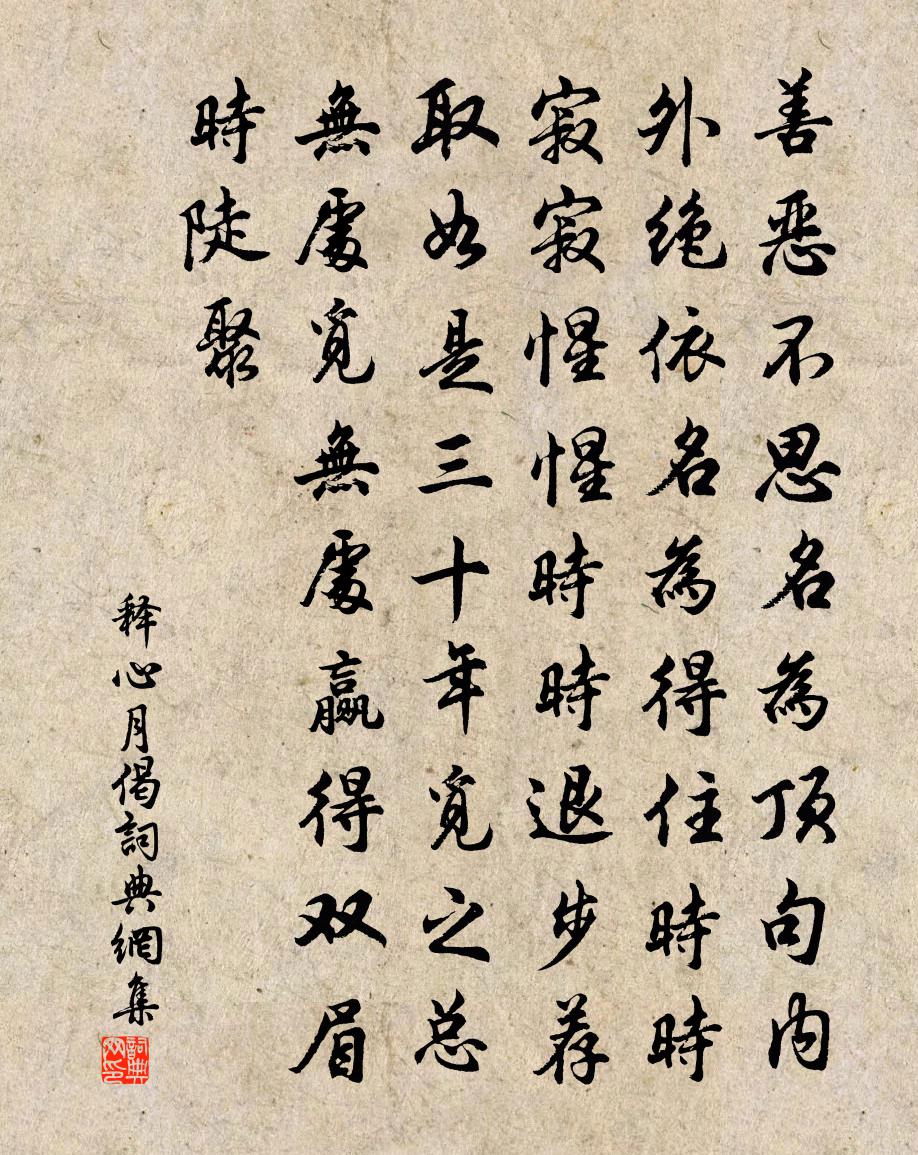 善惡不思名為頂句内
外絶依名為得住時時
寂寂惺惺時時退步荐
取如是三十年覓之总
無處覓無處贏得双眉
時陡聚
释心月偈詞典網集
詞典网印